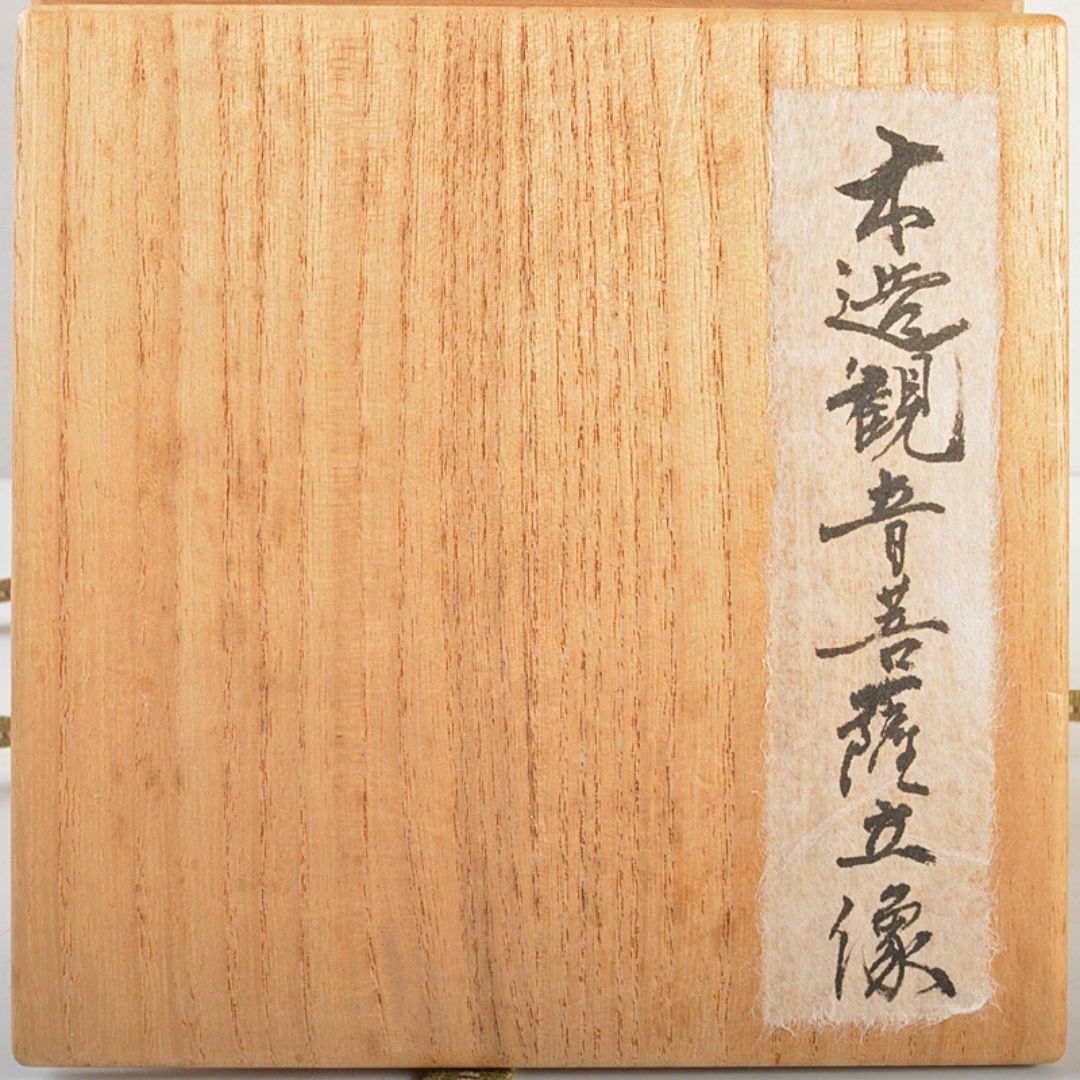 木造観音菩薩立像